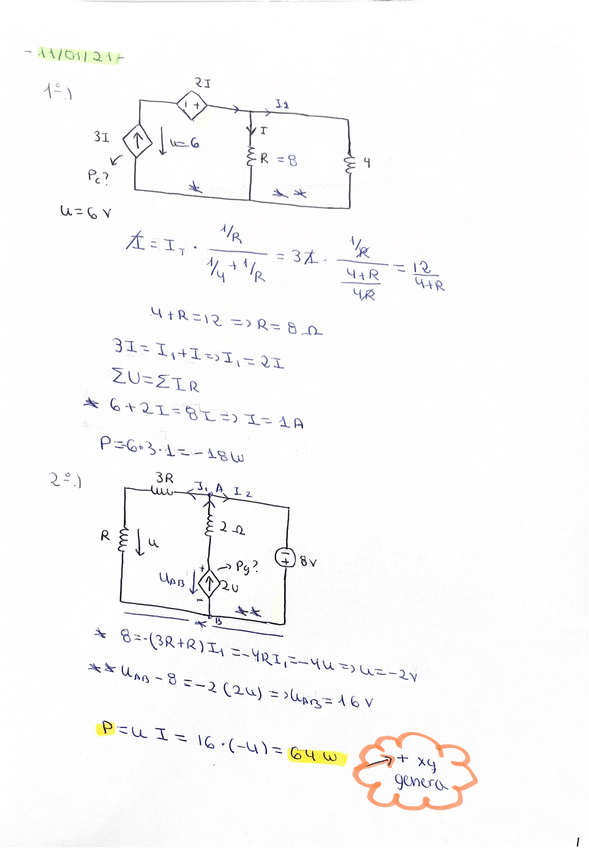 - 11/01/21 -
1º.)
2I
- +
I1
I
3I
u=6
R = 8
4
Pc?
* * *
u = 6 V
I = IT · 1/R / (1/4 + 1/R) = 3I · 1/R / ((4+R)/4R) = 12/(4+R)
4+R=12 => R= 8 Ω
3I = I1 + I => I1 = 2I
ΣU = ΣIR
* 6 + 2I = 8I => I = 1A
P = 6·3·1 = -18W
2º.)
3R
I1 A I2
2 Ω
R
u
+ → Pg?
UAB
2U
-
- + 8V
* B **
* 8 = -(3R+R) I1 = -4RI1 = -4u => u = -2V
** UAB - 8 = -2 (2u) => UAB = 16V
P = u I = 16·(-4) = 64 W
+ xq
genera
1